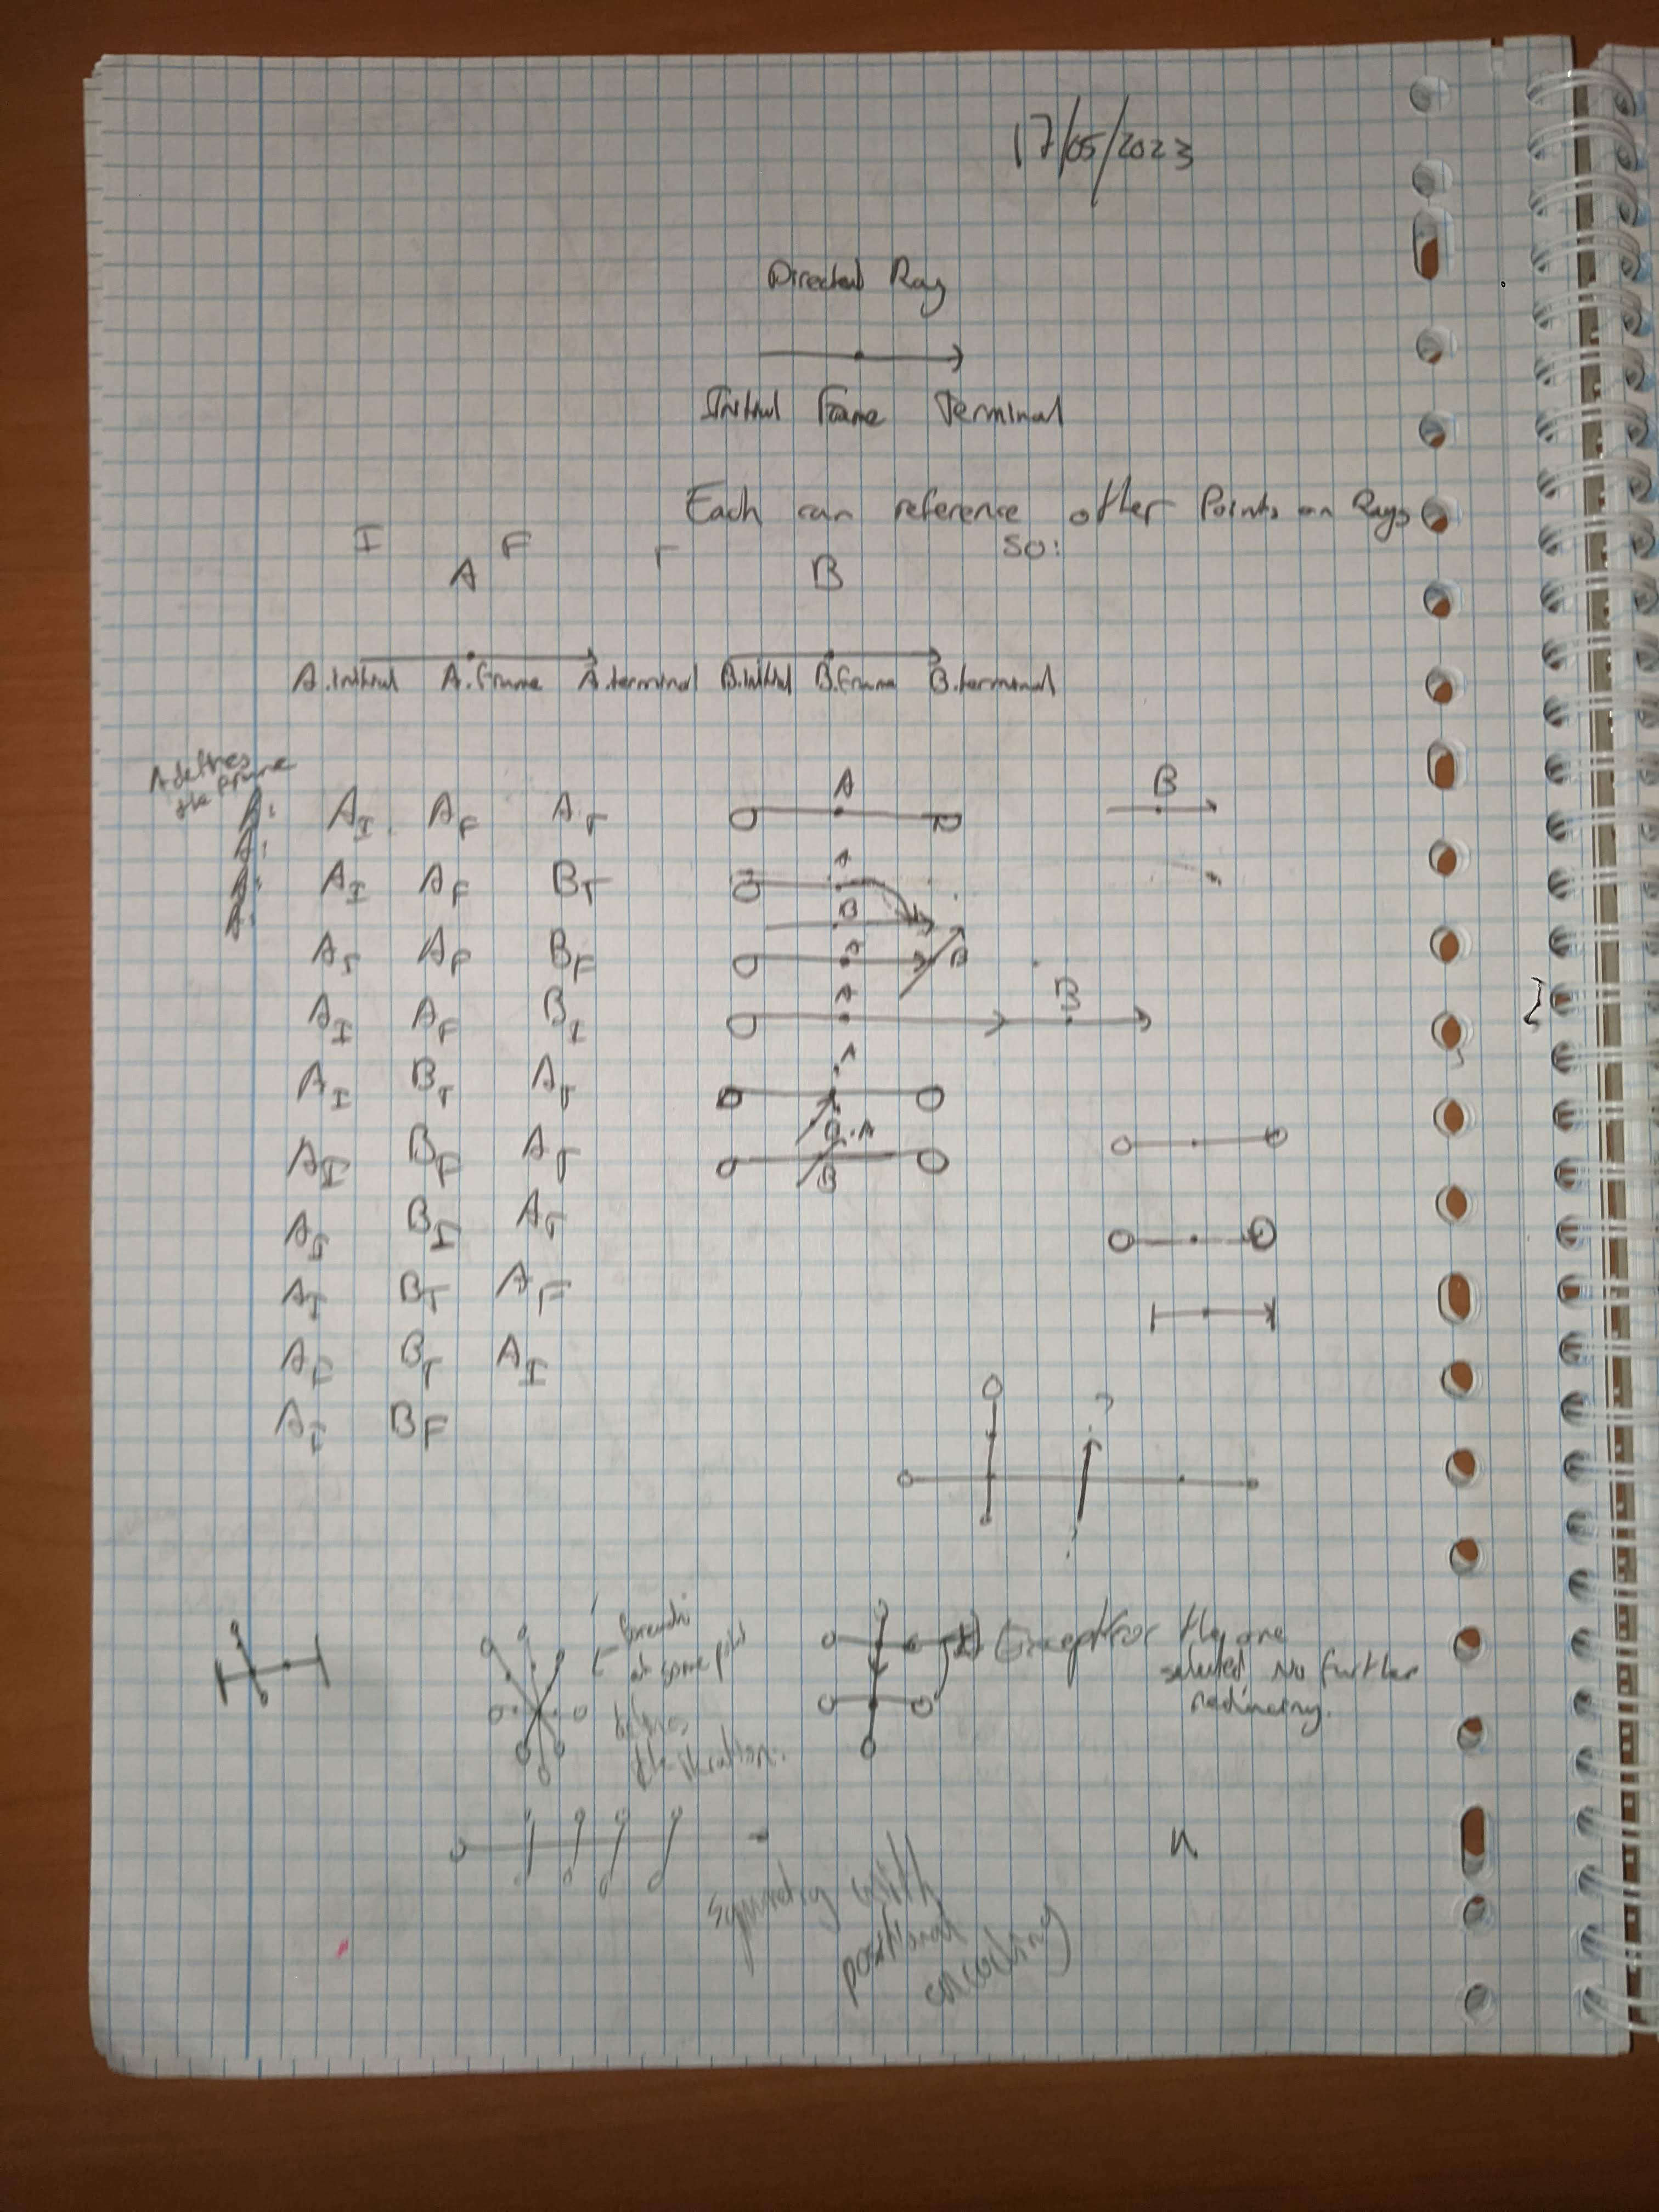 17/05/2023
Directed Ray
Initial Frame Terminal
Each can reference other Points on Rays
so:
I F T
A B
A.initial A.frame A.terminal B.initial B.frame B.terminal
A defines
the frame
A: A_I A_F A_T A B
A:
A: A_I A_F B_T A
A: B
A_I A_F B_F A B
A_I A_F B_I A B
A_I B_T A_T A
B A
A_I B_F A_T B
A_I B_I A_T
A_I B_T A_F
A_F B_T A_I
A_I B_F
at some point
the iteration.
Except for they are
selected no further
symmetry with
positional
encoding